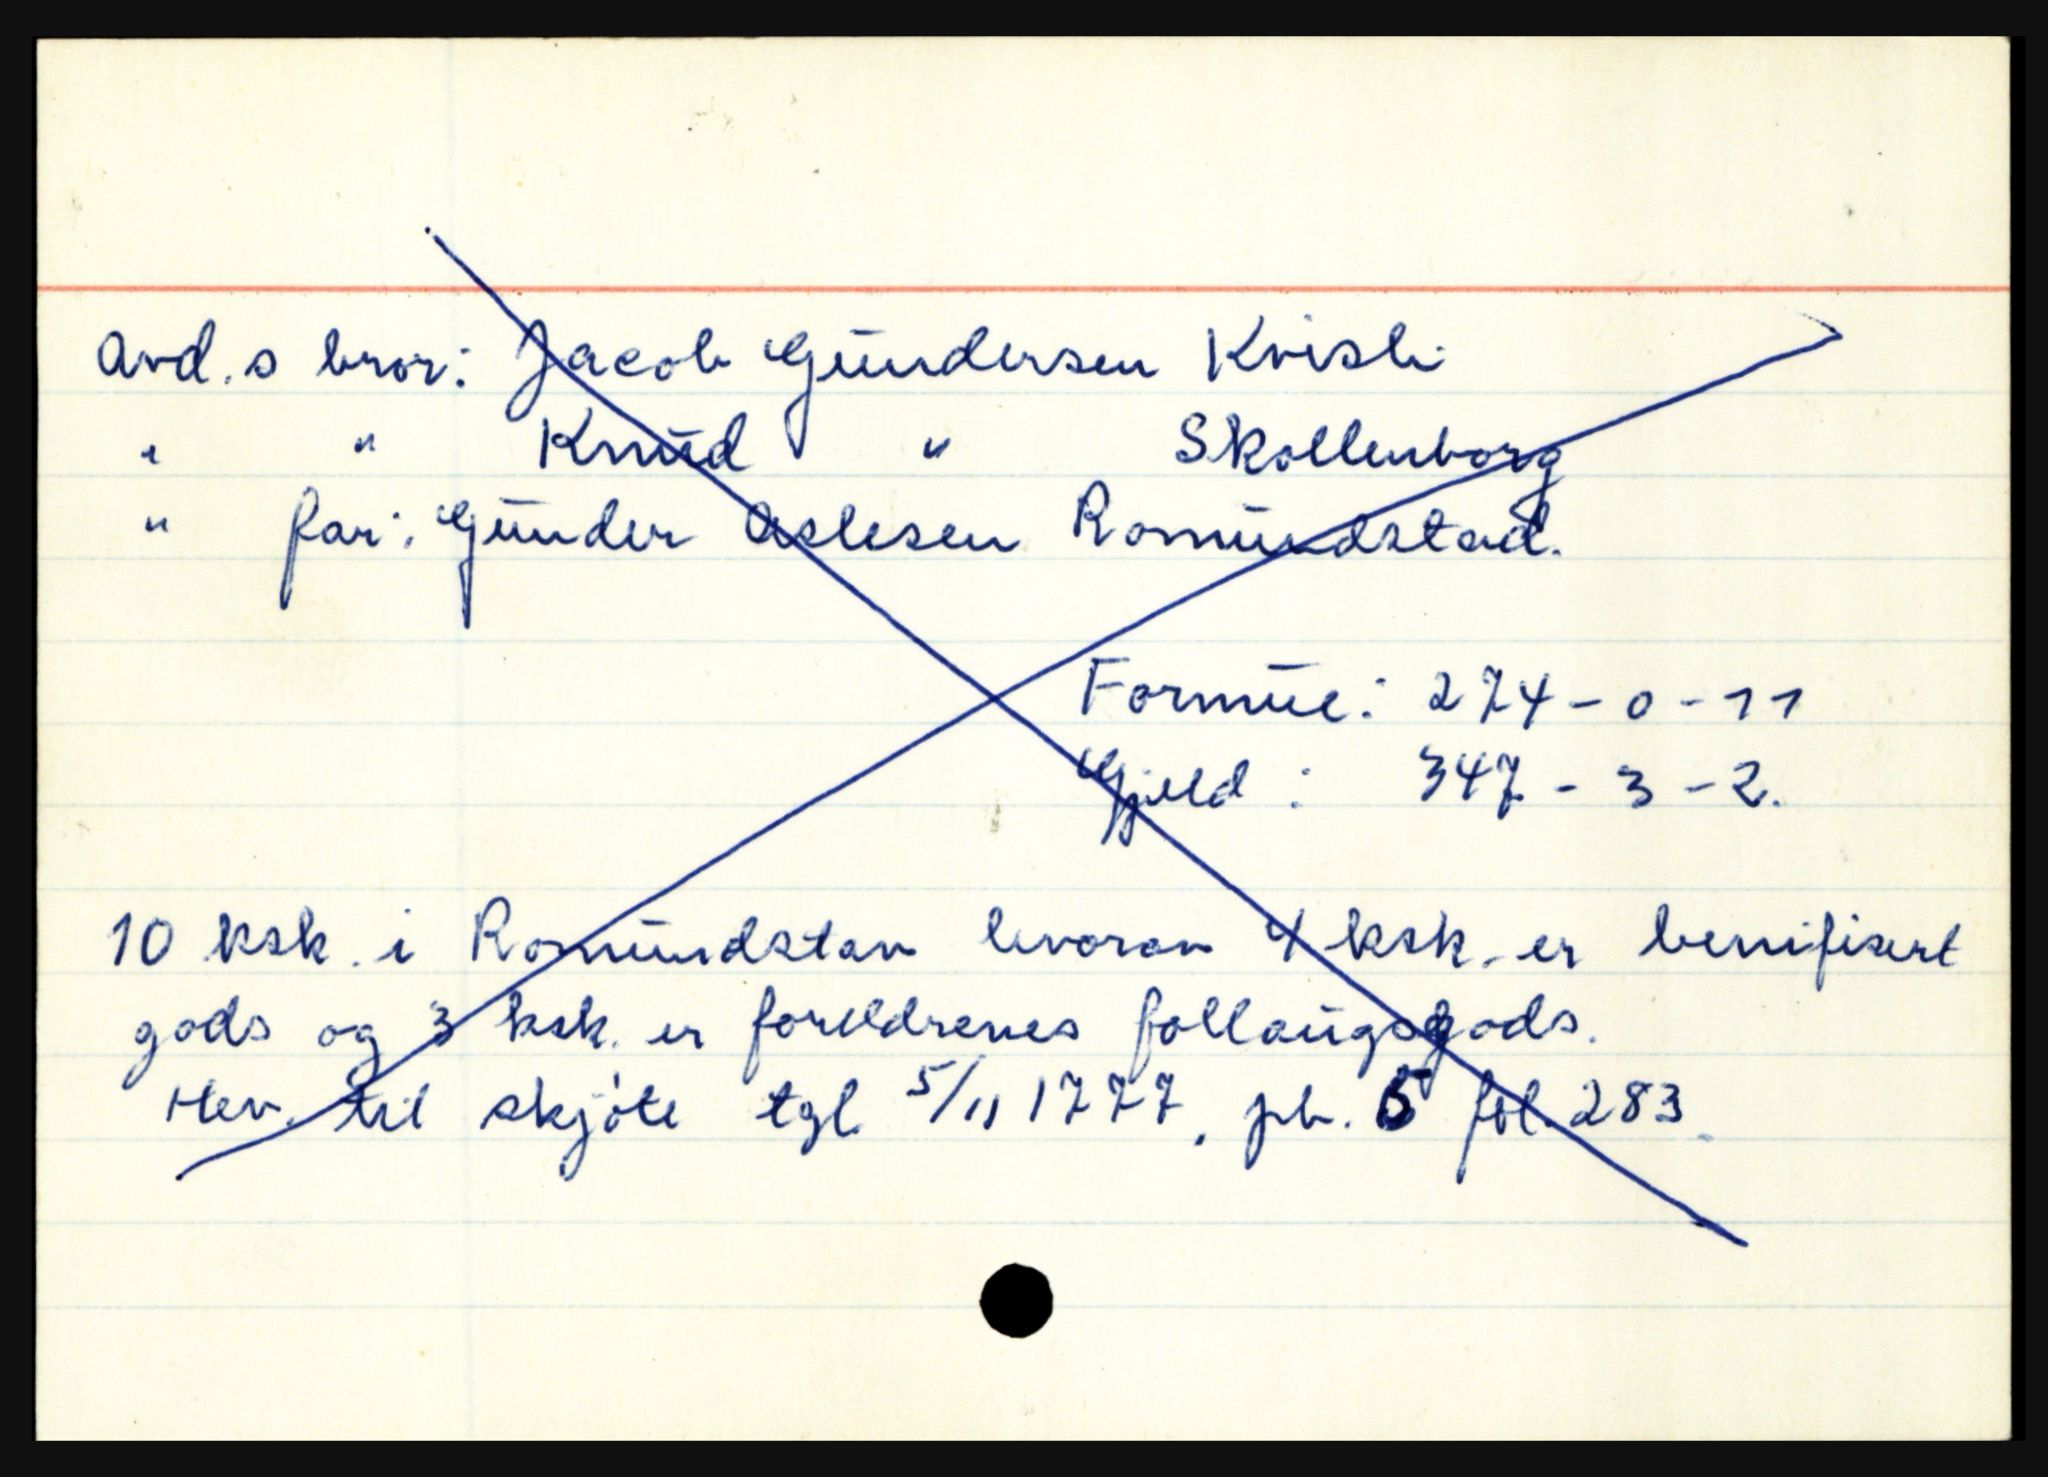 Avd.s bror: Jacob Gundersen Kvisli
" " Knud " Skollenborg
" far: Gunder Aslesen Romundstad.
Formue: 274-0-11
Gjeld: 347-3-2.
10 ksk. i Romundstav hvorav 4 ksk. er benifisert
gods og 3 ksk. er foreldrenes follaugsgods.
Hev. til skjöte tgl 5/11 1777, pb. 5 fol. 283.